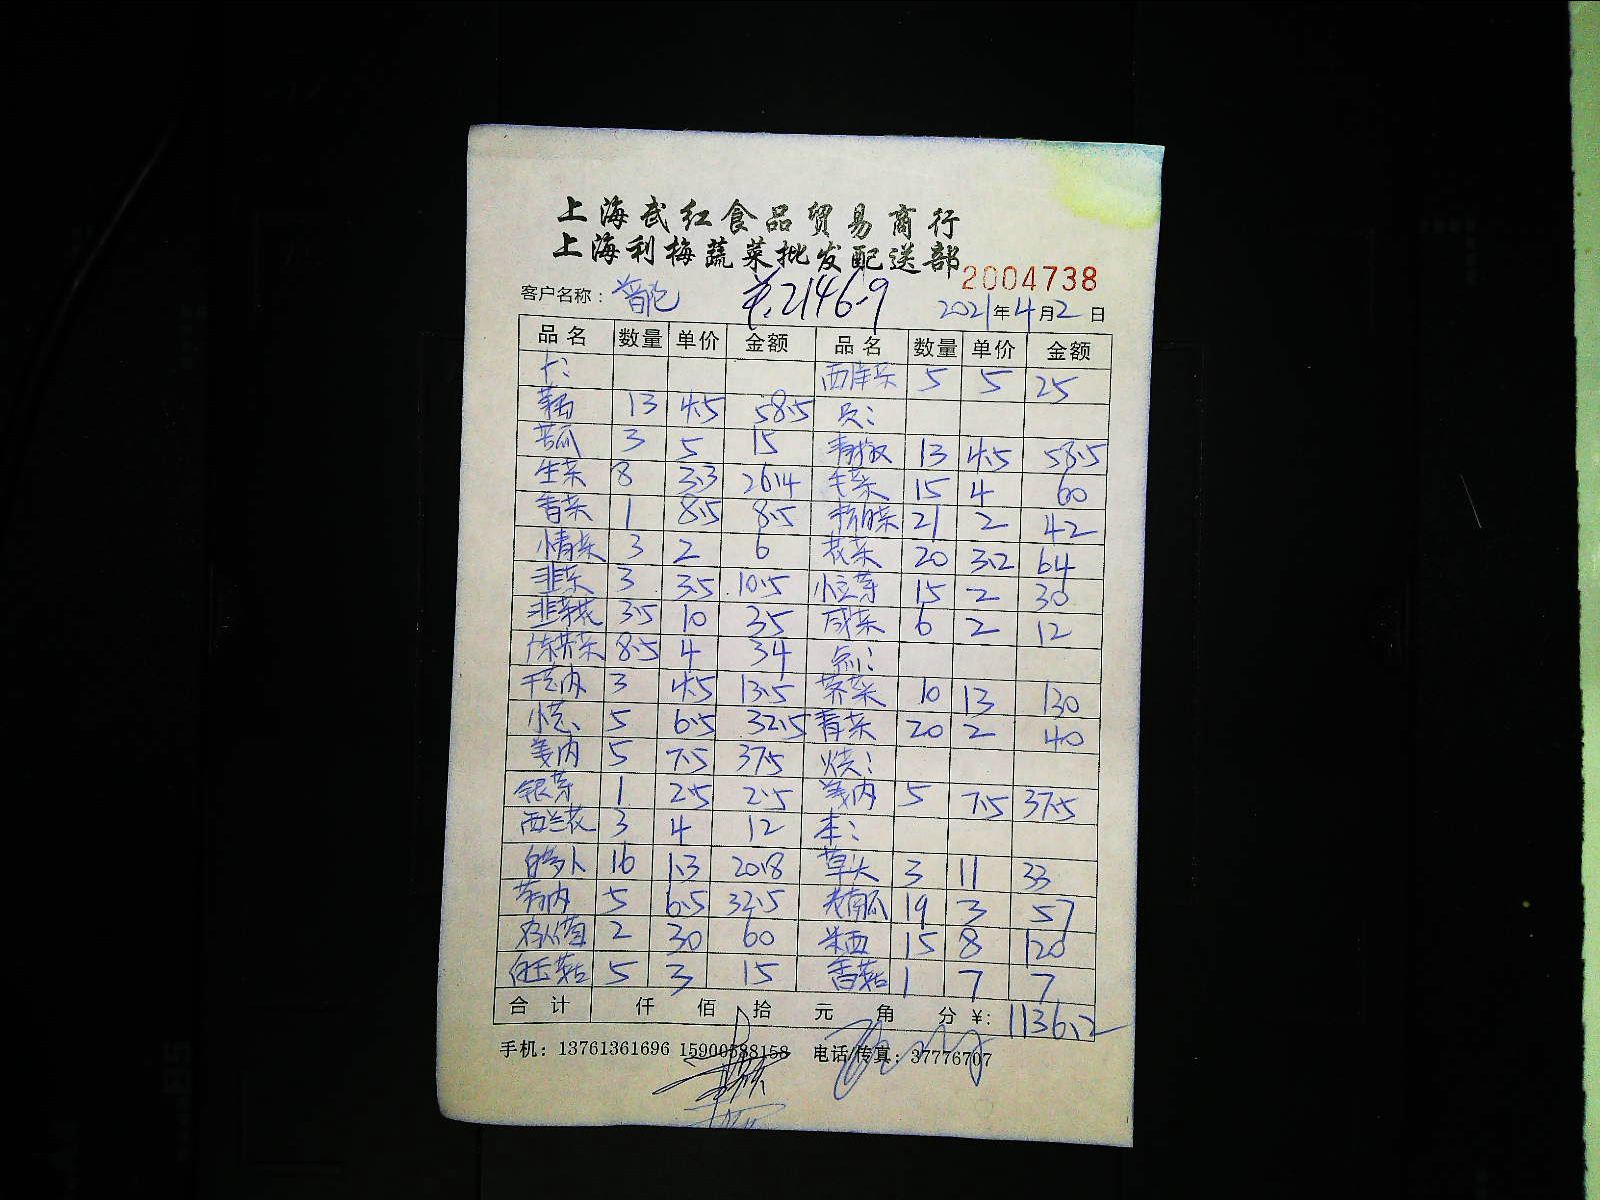 上海武红食品贸易商行
上海利梅蔬菜批发配送部
2004738
客户名称: 普陀 2146.9 2021年4月2日
品名 数量 单价 金额 品名 数量 单价 金额
5 5 25
13 4.5 58.5
苦瓜 3 5 15 青椒 13 4.5 58.5
生菜 8 3.3 26.4 毛菜 15 4 60
香菜 1 8.5 8.5 21 2 42
小青菜 3 2 6 花菜 20 3.2 64
韭菜 3 3.5 10.5 小豆芽 15 2 30
韭菜花 3.5 10 35 咸菜 6 2 12
8.5 4 34 点心:
3 4.5 13.5 荠菜 10 13 130
小葱 5 6.5 32.5 青菜 20 2 40
姜肉 5 7.5 37.5 烧:
银芽 1 2.5 2.5 姜肉 5 7.5 37.5
西兰花 3 4 12 本:
白萝卜 16 1.3 20.8 草头 3 11 33
5 6.5 32.5 老南瓜 19 3 57
2 30 60 15 8 120
白玉菇 5 3 15 香菇 1 7 7
合计 仟 佰 拾 元 角 分 ¥: 1136.2
手机: 13761361696 15900588158 电话/传真: 37776707